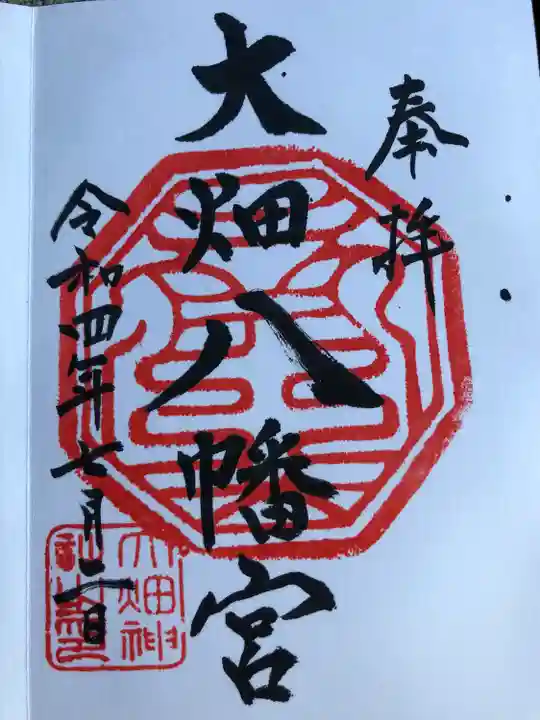 奉拝
大畑八幡宮
令和四年七月二日
大畑神
社